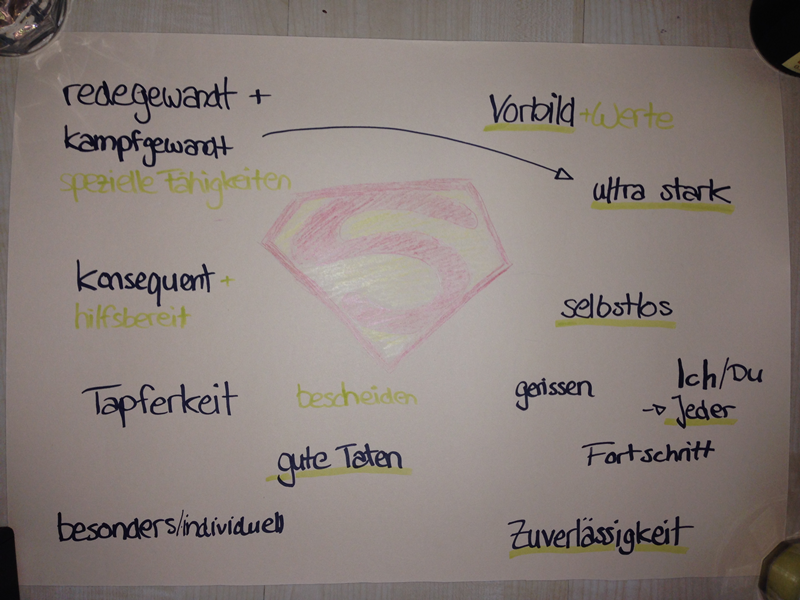 redegewandt +
kampfgewandt
spezielle Fähigkeiten
Vorbild +Werte
ultra stark
S
konsequent +
hilfsbereit
selbstlos
Tapferkeit
bescheiden
gerissen
Ich/Du
→ Jeder
gute Taten
Fortschritt
besonders/individuell
Zuverlässigkeit